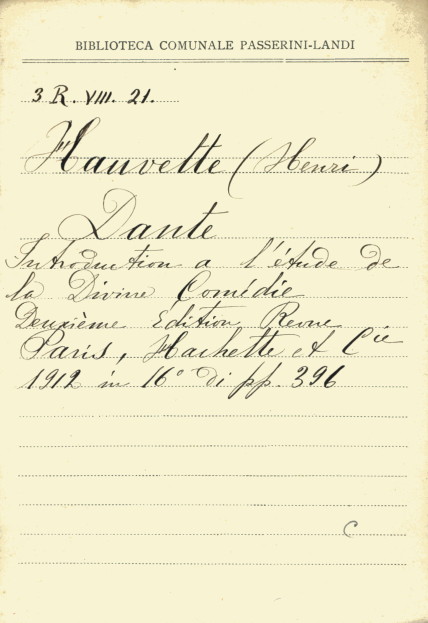 BIBLIOTECA COMUNALE PASSERINI-LANDI
3 R. VIII. 21.
Hauvette (Henri)
Dante
Introduction a l'étude de
la Divine Comédie
Deuxième Edition Revue
Paris, Hachette et Cie
1912 in 16° di pp. 396
C